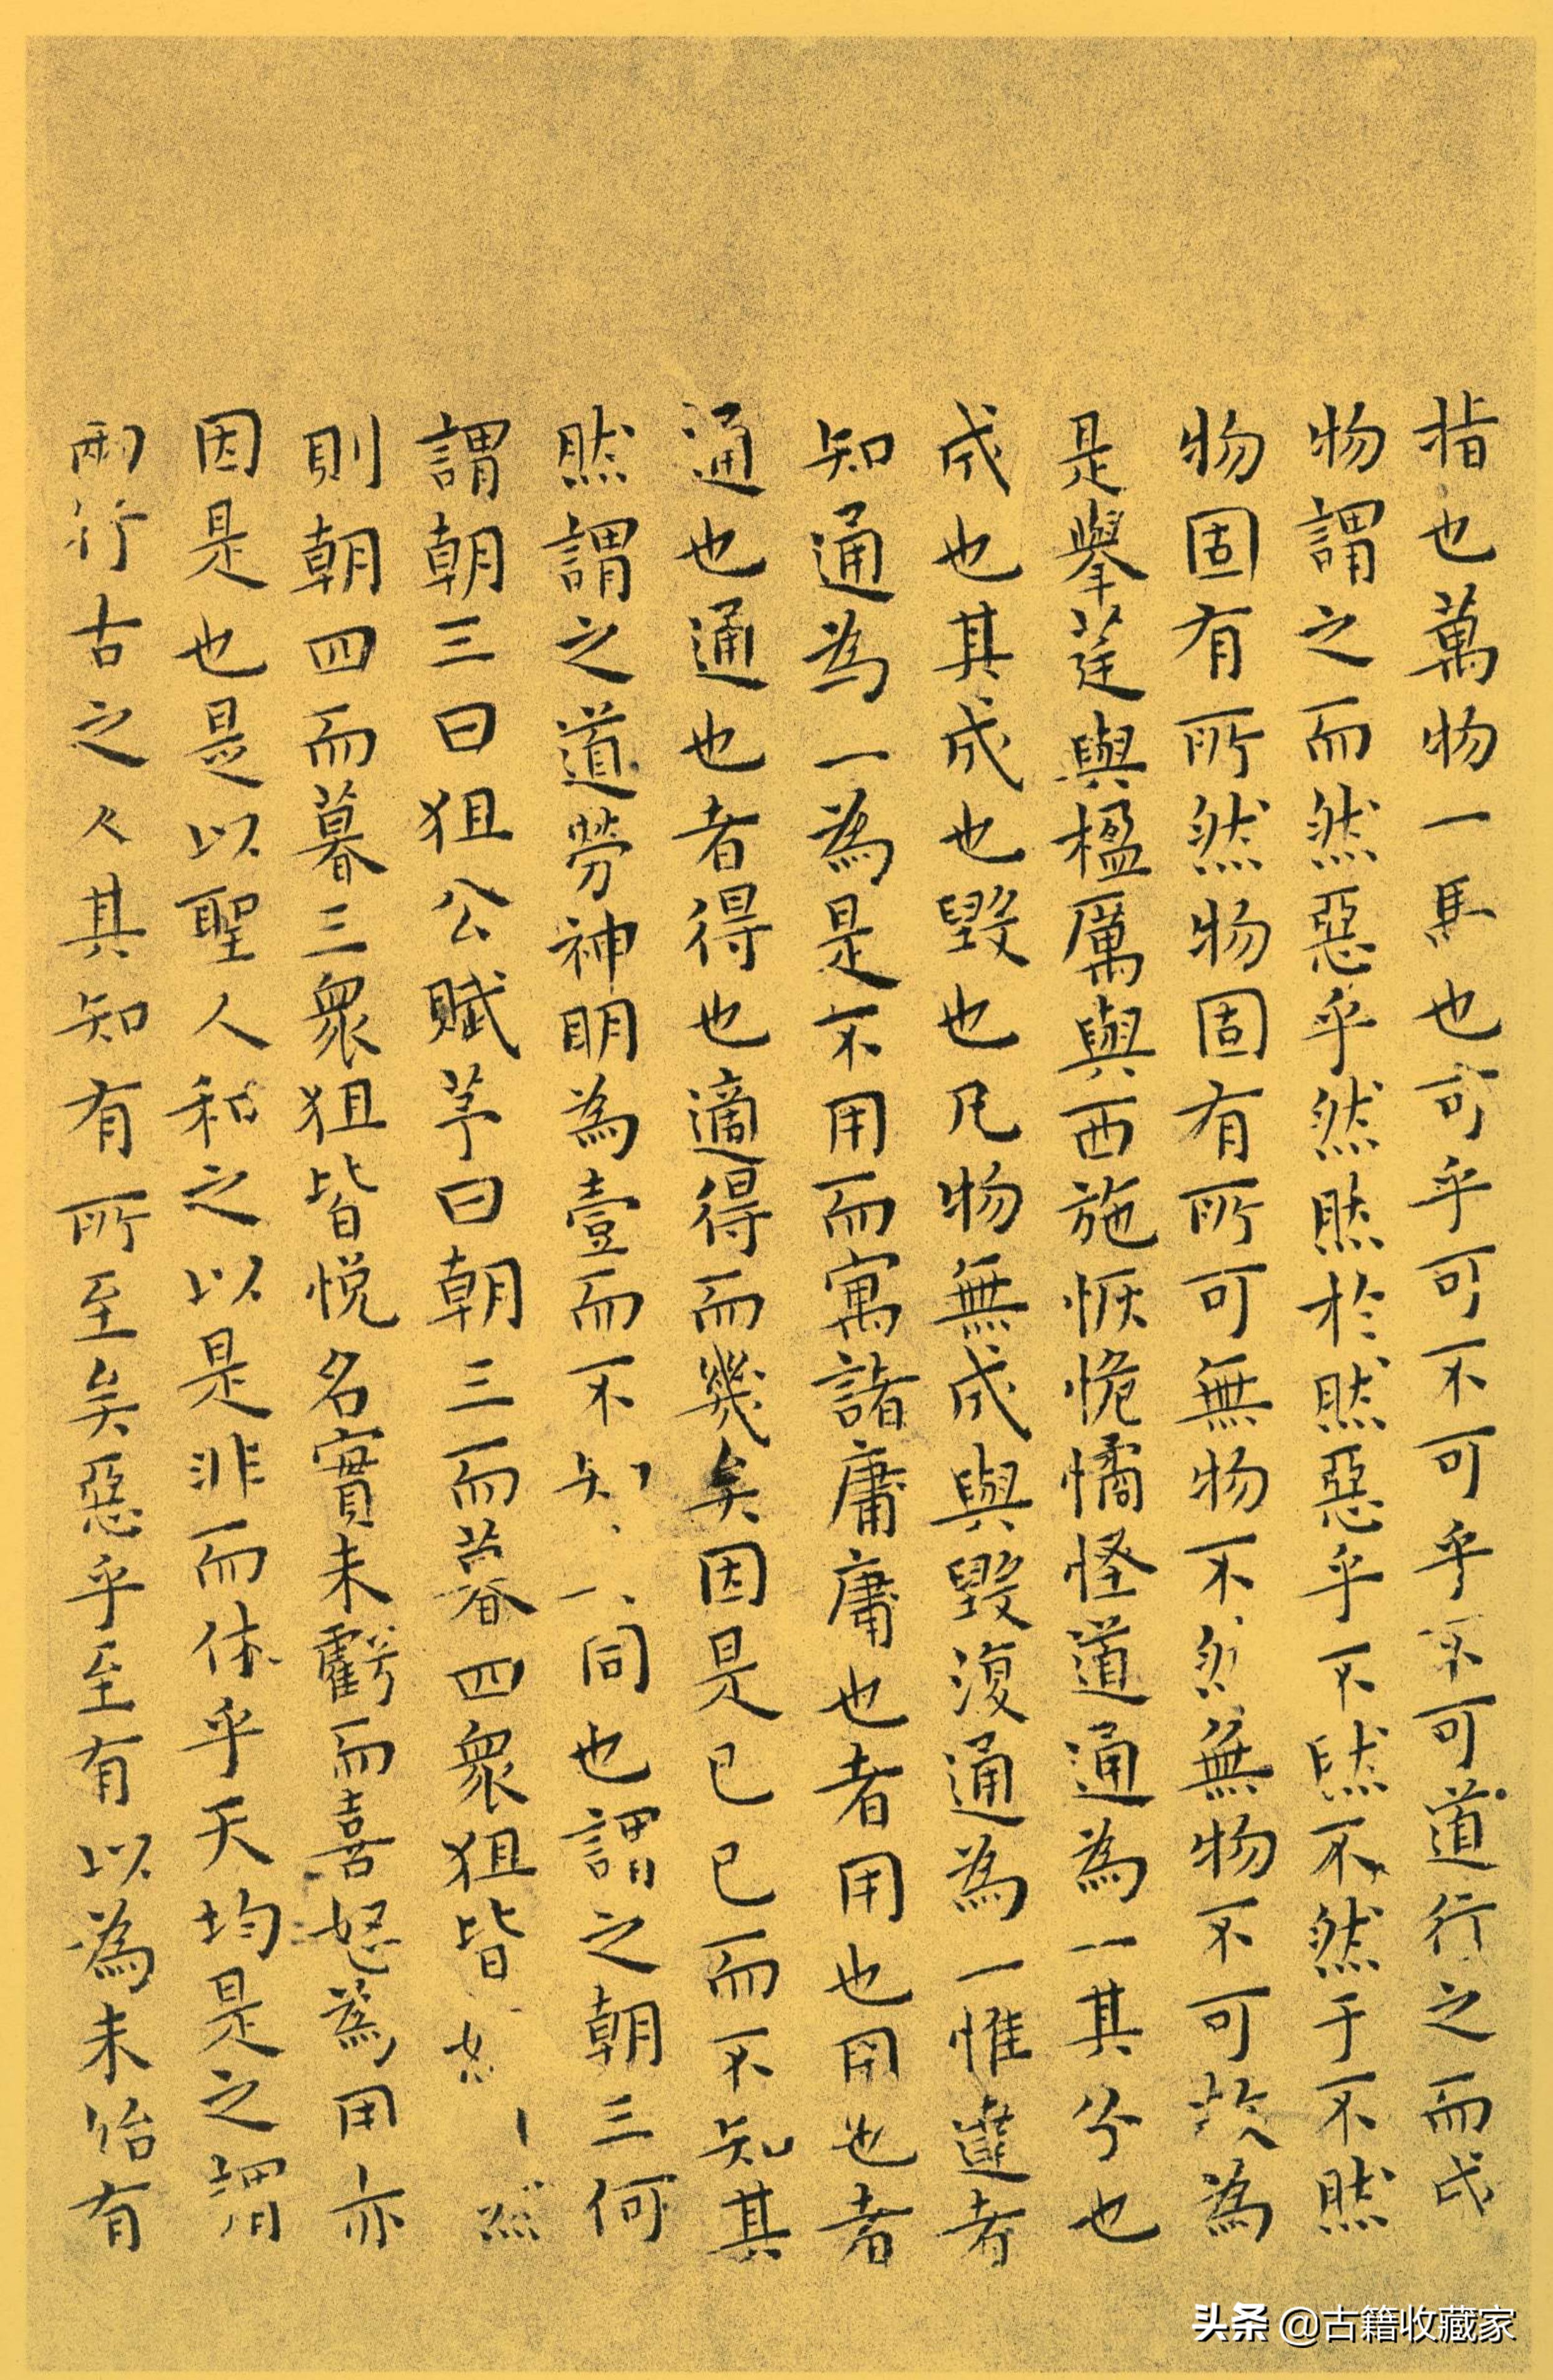 指也萬物一馬也可乎可不可乎不可道行之而成
物謂之而然惡乎然然於然惡乎不然不然于不然
物固有所然物固有所可無物不然無物不可故為
是舉莛與楹厲與西施恢恑憰怪道通為一其分也
成也其成也毀也凡物無成與毀復通為一惟達者
知通為一為是不用而寓諸庸庸也者用也用也者
通也通也者得也適得而幾矣因是已已而不知其
然謂之道勞神明為壹而不知同也謂之朝三何
謂朝三曰狙公賦芧曰朝三而暮四眾狙皆怒
則朝四而暮三眾狙皆悅名實未虧而喜怒為用亦
因是也是以聖人和之以是非而休乎天均是之謂
兩行古之人其知有所至矣惡乎至有以為未始有
头条 @古籍收藏家